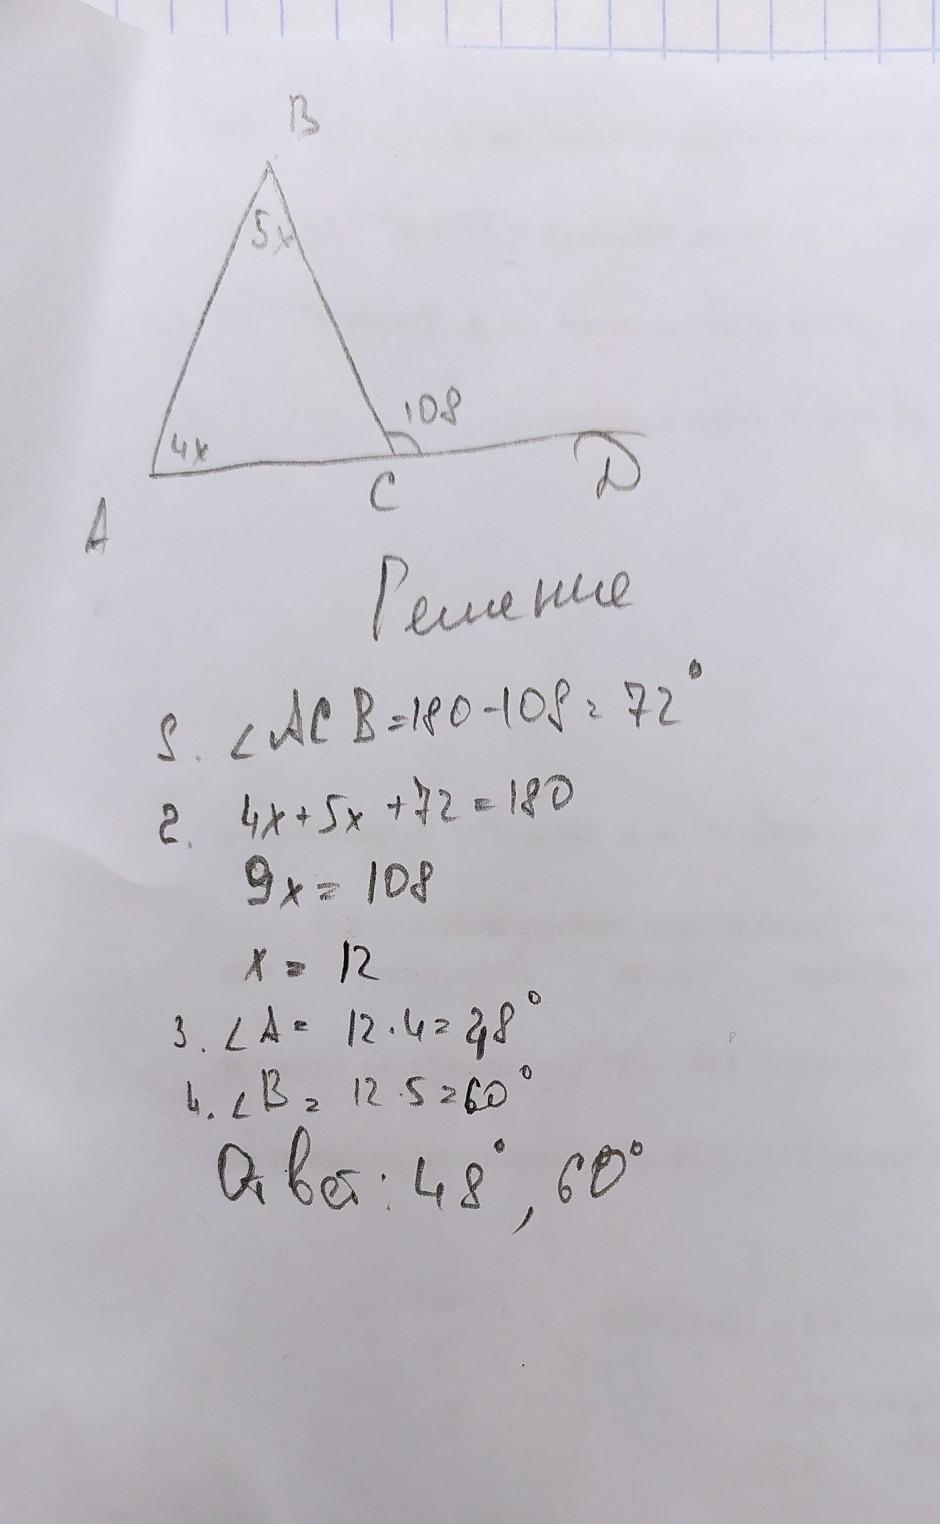 B
5x
108
4x
C
D
A
Решение
1. ∠ACB=180-108=72°
2. 4x+5x+72=180
9x=108
x=12
3. ∠A=12·4=48°
4. ∠B=12·5=60°
Ответ: 48°, 60°